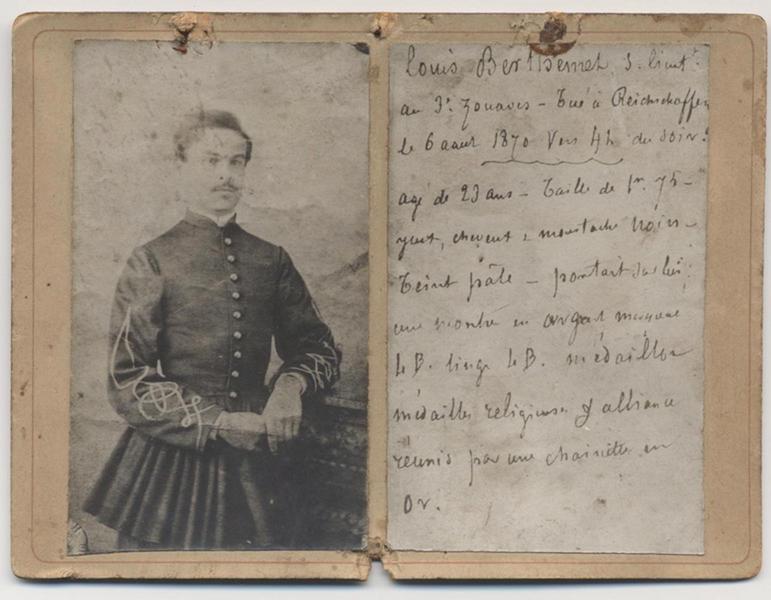 Louis Berthemet s. lieutt
au 3e Zouaves - Tué à Reichschoffen
le 6 aout 1870 Vers 4h du soir.
agé de 23 ans - Taille de 1m 75 -
yeux, cheveux & moustache noirs -
Teint pâle - portait sur lui
une montre en argent marquée
L B. linge L B. médaillon
médailles religieuses & alliance
réunis par une chainette en
Or.